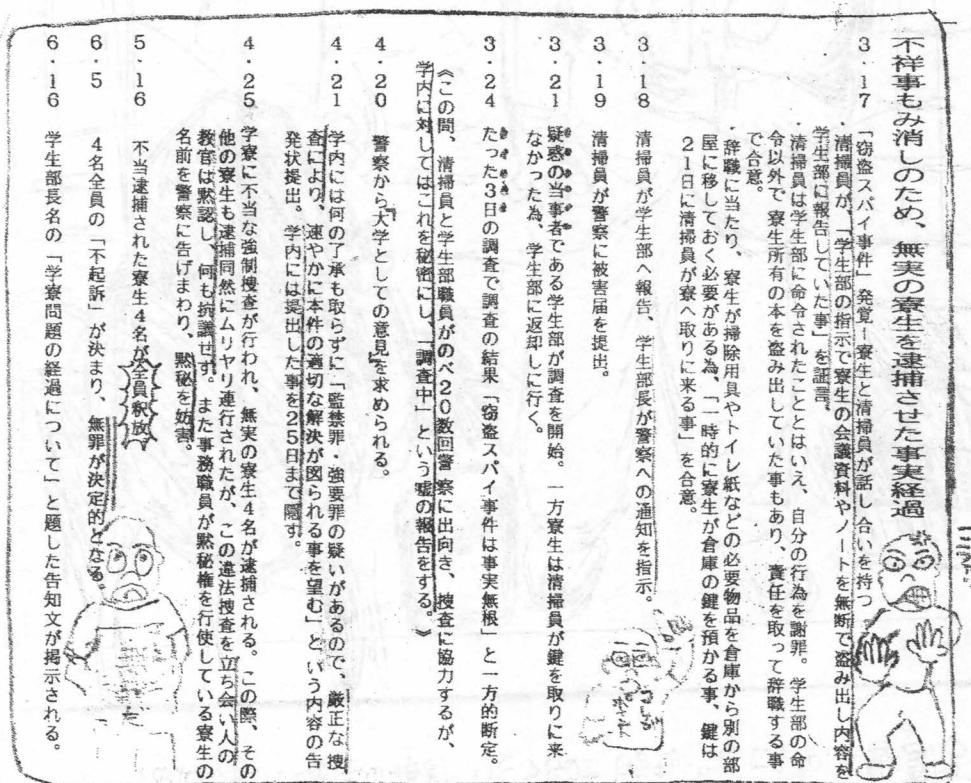 不祥事もみ消しのため、無実の寮生を逮捕させた事実経過
3・17 「窃盗スパイ事件」発覚―寮生と清掃員が話し合いを持つ
・清掃員が、「学生部の指示で寮生の会議資料やノートを無断で盗み出し内容を
学生部に報告していた事」を証言。
・清掃員は学生部に命令されたこととはいえ、自分の行為を謝罪。学生部の命
令以外で寮生所有の本を盗み出していた事もあり、責任を取って辞職する事
で合意。
・辞職に当たり、寮生が掃除用具やトイレ紙などの必要物品を倉庫から別の部
屋に移しておく必要がある為、「一時的に寮生が倉庫の鍵を預かる事、鍵は
21日に清掃員が寮へ取りに来る事」を合意。
3・18 清掃員が学生部へ報告、学生部長が警察への通知を指示
3・19 清掃員が警察に被害届を提出。
3・21 疑惑の当事者である学生部が調査を開始。一方寮生は清掃員が鍵を取りに来
なかった為、学生部に返却しに行く。
3・24 たった3日の調査で調査の結果「窃盗スパイ事件は事実無根」と一方的断定。
《この間、清掃員と学生部職員がのべ20数回警察に出向き、捜査に協力するが、
学内に対してはこれを秘密にし、「調査中」という嘘の報告をする。》
4・20 警察から「大学としての意見」を求められる。
4・21 学内には何の了承も取らずに「監禁罪・強要罪の疑いがあるので、厳正な捜
査により、速やかに本件の適切な解決が図られる事を望む」という内容の告
発状提出。学内には提出した事を25日まで隠す。
4・25 学寮に不当な強制捜査が行われ、無実の寮生4名が逮捕される。この際、その
他の寮生も逮捕同然にムリヤリ連行されたが、この違法捜査を立ち会い人の
教官は黙認し、何も抗議せず。また事務職員が黙秘権を行使している寮生の
名前を警察に告げまわり、黙秘を妨害。
5・16 不当逮捕された寮生4名が全員釈放
6・5 4名全員の「不起訴」が決まり、無罪が決定的となる。
6・16 学生部長名の「学寮問題の経過について」と題した告知文が掲示される。